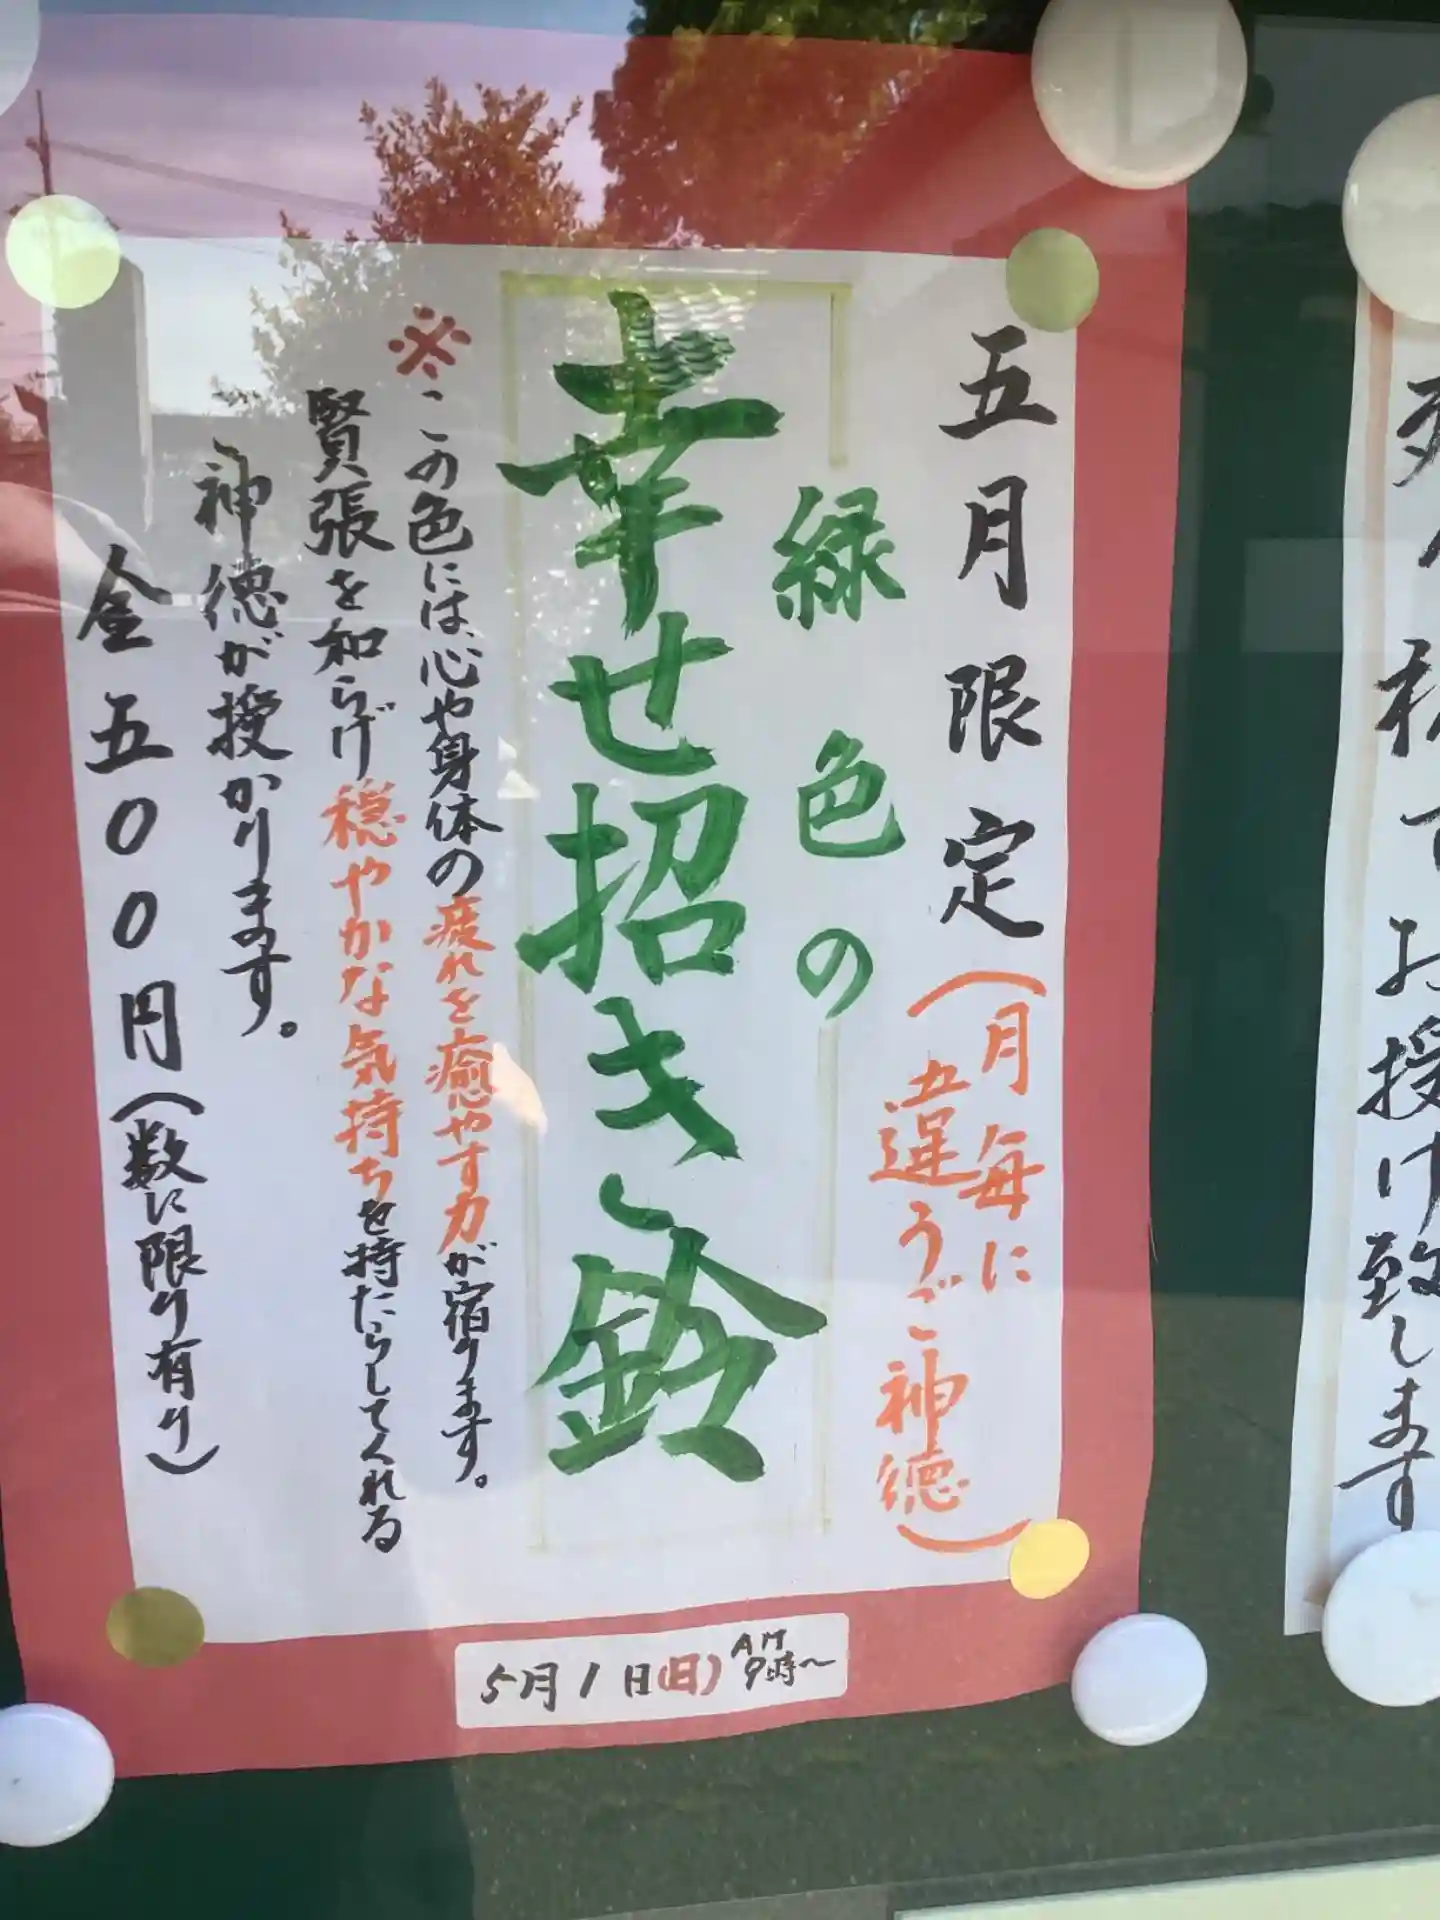 五月限定(月毎に
違うご神徳)
緑色の
幸せ招き鈴
※この色には、心や身体の疲れを癒やす力が宿ります。
賢張を和らげ穏やかな気持ちを持たらしてくれる
ご神徳が授かります。
金五〇〇円(数に限り有り)
5月1日(日)AM9時〜
お授け致します